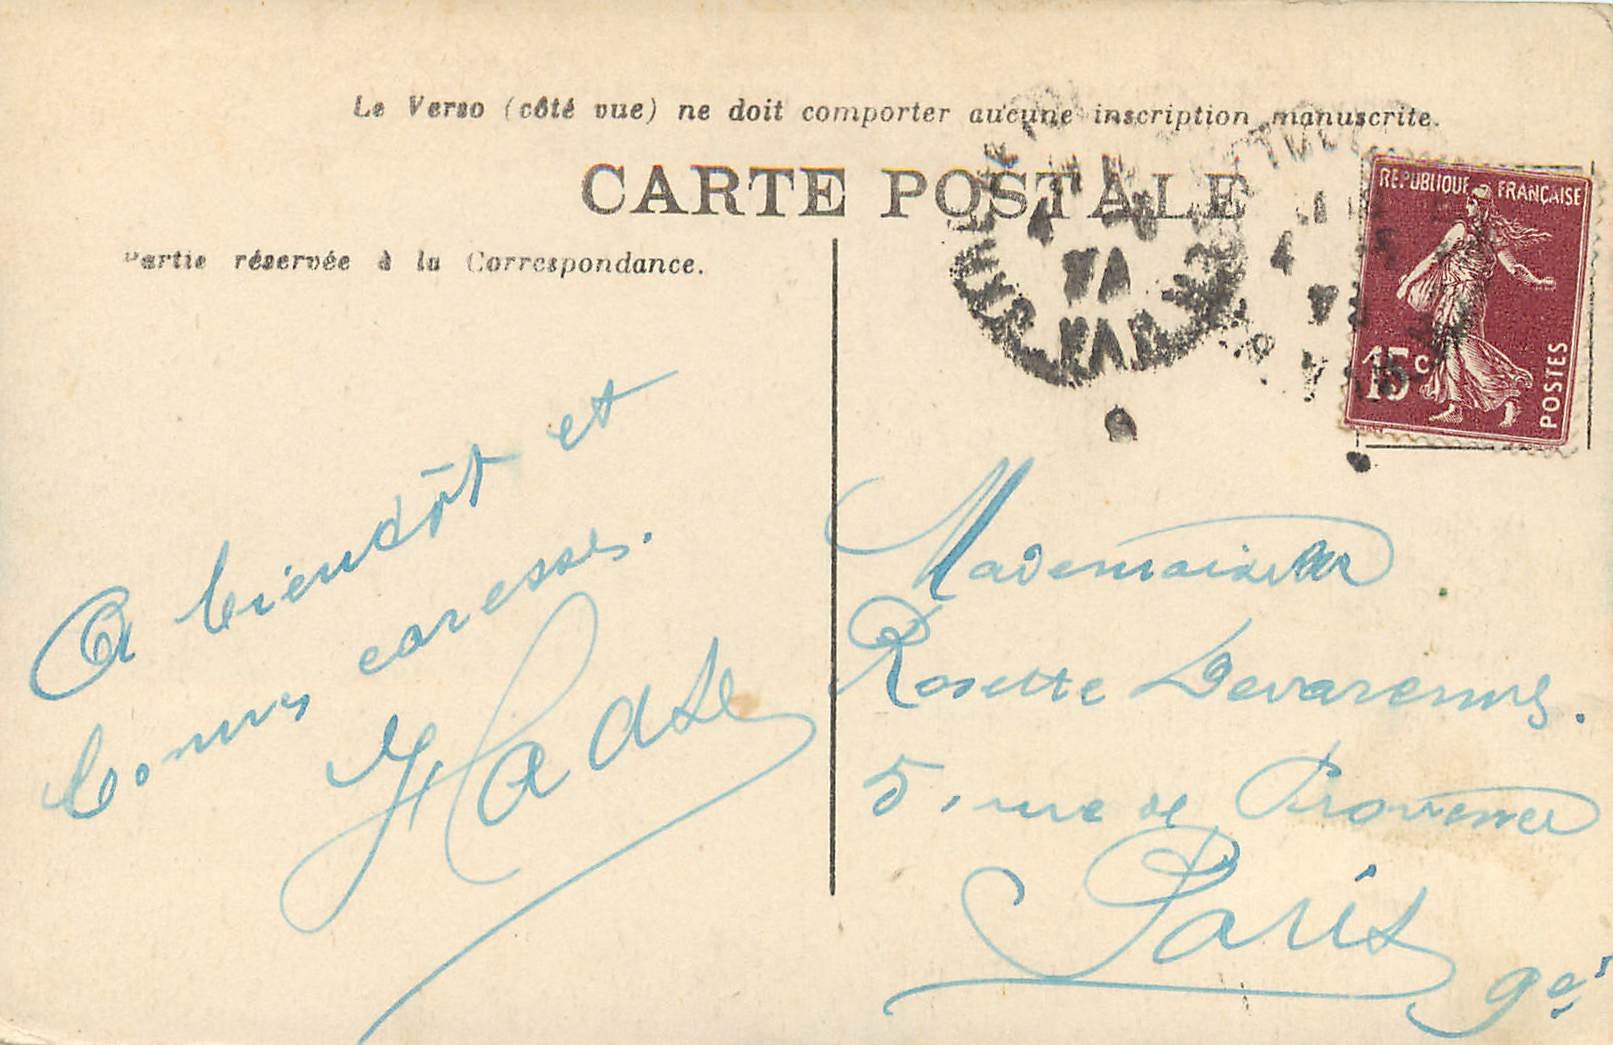 Le Verso (côté vue) ne doit comporter aucune inscription manuscrite.
CARTE POSTALE
Partie réservée à la Correspondance.
REPUBLIQUE FRANÇAISE
15c
POSTES
A bientôt et
bonnes caresses.
Mademoiselle
Rosette Devarennes.
5, rue de Provence
Paris
9e